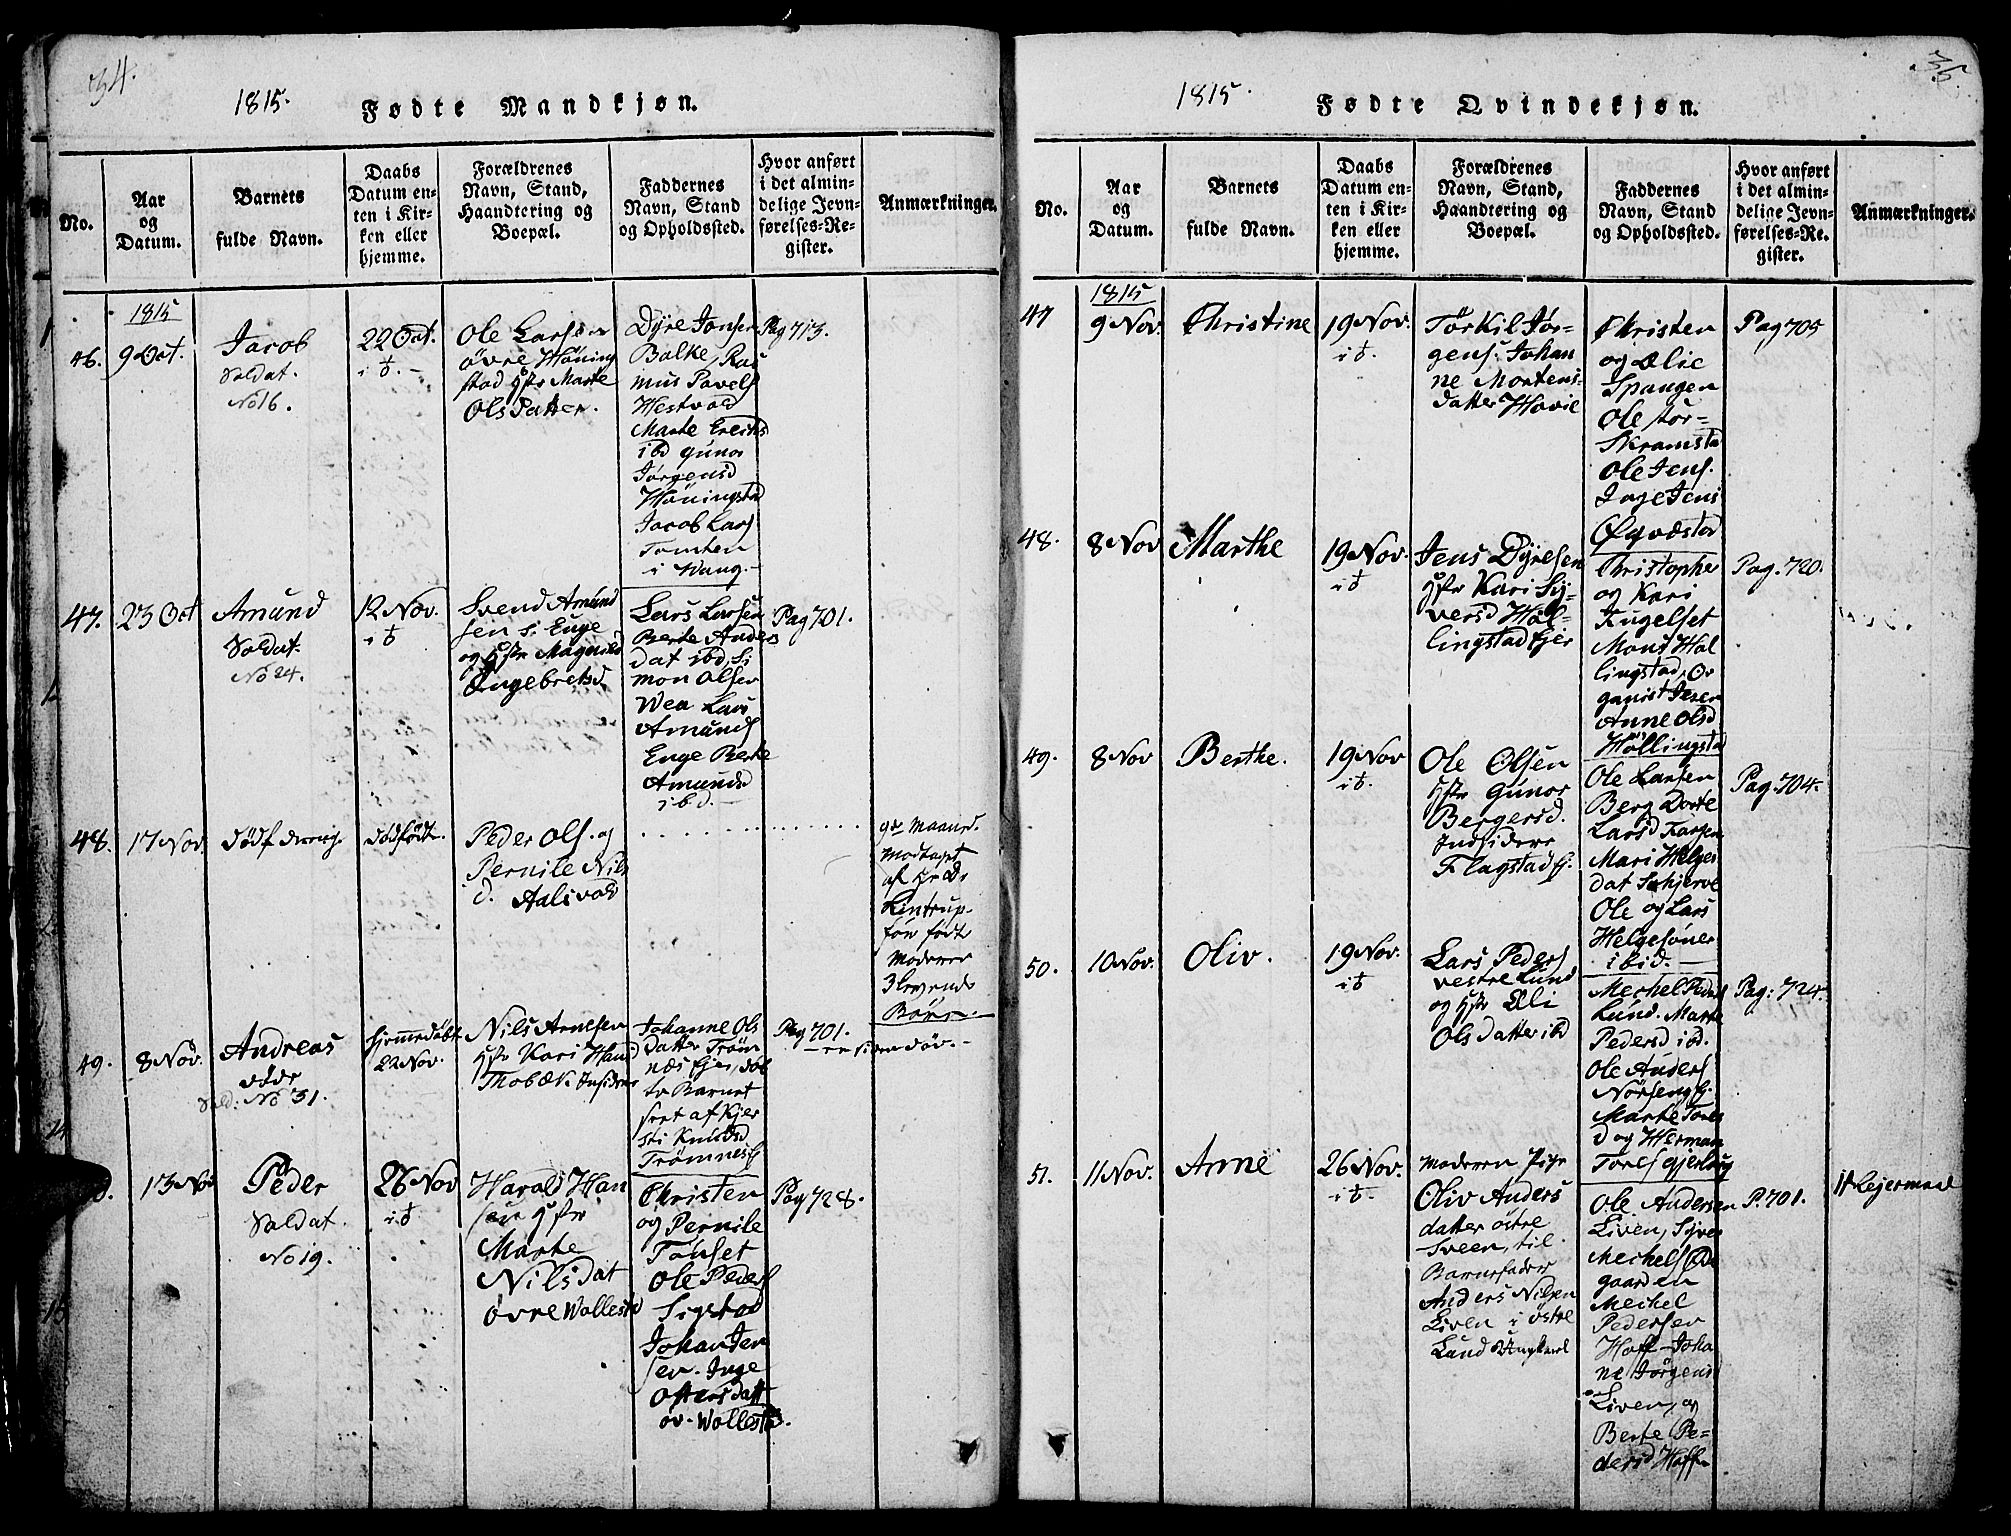 34.
1815.
Fødte Mandkjøn.
No.
Aar
og
Datum.
Barnets
fulde Navn.
Daabs
Datum en-
ten i Kir-
ken eller
hjemme.
Forældrenes
Navn, Stand,
Haandtering og
Boepæl.
Faddernes
Navn, Stand
og Opholdssted.
Hvor anført
i det almin-
delige Jevn-
førelses-Re-
gister.
Anmærkninger.
1815
46.
9 Oct.
Jacob
Soldat.
No 16.
22 Oct.
Ole Larsen
øvre Höning
stad Hstr Marte
Ols Datter.
Dyre Jonsen
Balke, Ras
mus Pavels
Westvold
Marte Erichs
ibd Gunor
Jørgensd
Höningstad
Jacob Lars
Tomten
i Wang.
Pag 713.
47.
23 Oct
Amund
Soldat.
No 24.
12 Nov.
Svend Amund
sen s. Enge
og Hstr Magnild
Engebretsd.
Lars Larsen
Berte Anders
dat ibd, Si
mon Olsen
Wea Lars
Amunds
Enge Berte
Amundsd
ibd.
Pag 701.
48.
17 Nov.
Dødf
dødfödt.
Peder Ols. og
Pernile Nils
d. Aalsvold
Maaned.
Modtaget
af
Lintrup
før födt
Moderen
3 levende
Börn.
49.
8 Nov.
Andreas
døde
Sold: No 31.
hjemmedöbt
22 Nov.
Nils Arnesen
Hstr Kari Hans
Thobæk Insidere
Johanne Ols
datter Tröm
næs Ejer, döb
te Barnet
seet af Kjer
sti Knudsd
Trömnes
Pag 701.
13 Nov
Peder
Soldat.
No 19.
26 Nov
Harald Han
sen Hstr
Marte
Nilsdat
øvre Wollestd
Christen
og Pernile
Tönset
Ole Peders
Sigstad
Johan Jen
sen. Inge
Ostensdatt
øv. Wollestd.
Pag 728.
35.
1815.
Fødte Qvindekjøn.
No.
Aar
og
Datum.
Barnets
fulde Navn.
Daabs
Datum en-
ten i Kir-
ken eller
hjemme.
Forældrenes
Navn, Stand,
Haandtering og
Boepæl.
Faddernes
Navn, Stand
og Opholdssted.
Hvor anført
i det almin-
delige Jevn-
førelses-Re-
gister.
Anmærkninger.
1815
47
9 Nov.
Christine
19 Nov.
Törkil Jør-
gens. Johan
ne Mortens-
datter Hovie
Christen
og Olie
Spangen
Ole tor-
Skramstd
Ole Jens.
Inge Jens
Øqvæstad
Pag 705
48.
8 Nov
Marthe
19 Nov.
Jens Dyresen
Hstr Kari Sy-
versd Hol-
lingstad Ejer
Christopher
og Kari
Ingelset
Mons Hol
lingstad, Or
ganist Iver
Anne Olsd
Höllingstd
Pag. 720.
49.
8 Nov
Berthe.
19 Nov
Ole Olsen
Hstr Gunor
Bergersd.
Indsidere
Flagstad Ej.
Ole Larsen
Berg Dorte
Larsd Karsen
Mari Helges
dat Schjerve
Ole og Lars
Helgesöner
ibid.
Pag. 704.
50.
10 Nov.
Oliv.
19 Nov.
Lars Peders
vestre Lund
og Hstr Eli
Ols datter ibd
Mechel Peders
Lund. Marte
Pedersd ibd.
Ole Anders
Nörseng Ej.
Marte Tores
d og Herman
Tores Gjerlaug
Pag: 724.
51.
11 Nov.
Anne
26 Nov.
Moderen Pige
Oliv Anders
datter östre
Sveen, til
Barnefader
Anders Nilsen
Liven i östre
Lund Ungkarl
Ole Andersen
Liven, Syver
Mechels Ød
gaarden
Mechel
Pedersen
Hoff. Joha
ne Jörgensd
Liven, og
Berte Pe-
dersd Hoff.
P. 701.
1st Lejermaal